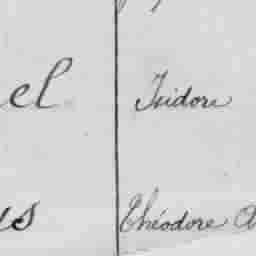 el Isidore
us Théodore A